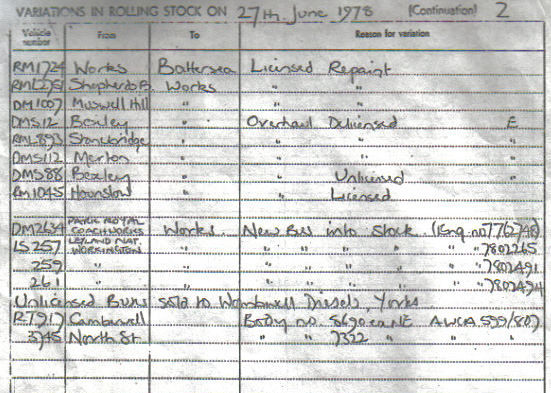 VARIATIONS IN ROLLING STOCK ON 27th June 1978 (Continuation) 2
Vehicle number From To Reason for variation
RM1724 Works Battersea Licensed Repaint
Shepherds B. Works " "
DM1007 Muswell Hill " " "
DMS12 Bexley " Overhaul Delicensed E
RML893 Stonebridge " " " "
DMS112 Merton " " " "
DMS88 Bexley " " Unlicensed "
RM1045 Hounslow " " Licensed
DM2634 PARK ROYAL COACHWORKS Works New Bus into Stock (Eng. no 776248)
LS257 LEYLAND NAT. WORKINGTON " " " " " " 7802265
259 " " " " " " " 7802491
261 " " " " " " " 7802494
Unlicensed Buses sold to Wombwell Diesels, Yorks
RT917 Camberwell Body no. 5690 ex. NE AWCA 599/807
3745 North St. " " 7322 " " "